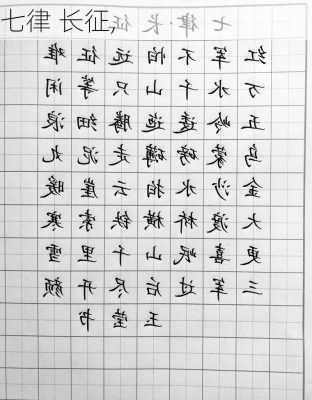 七律 长征,
七律·长征
红军不怕远征难
万水千山只等闲
五岭逶迤腾细浪
乌蒙磅礴走泥丸
金沙水拍云崖暖
大渡桥横铁索寒
更喜岷山千里雪
三军过后尽开颜
玉莹书